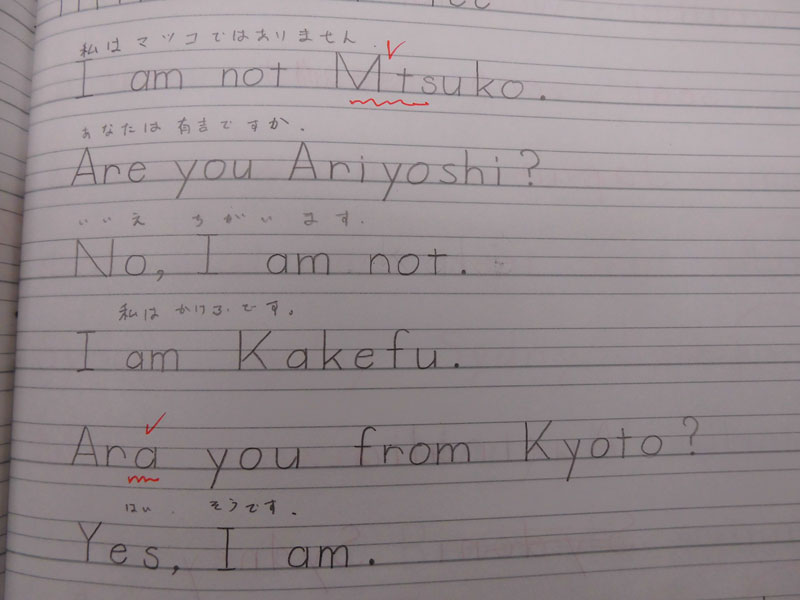 私はマツコではありません.
I am not Mtsuko.
あなたは有吉ですか.
Are you Ariyoshi?
いいえ ちがいます.
No, I am not.
私はかけふです。
I am Kakefu.
Ara you from Kyoto?
はい. そうです.
Yes, I am.